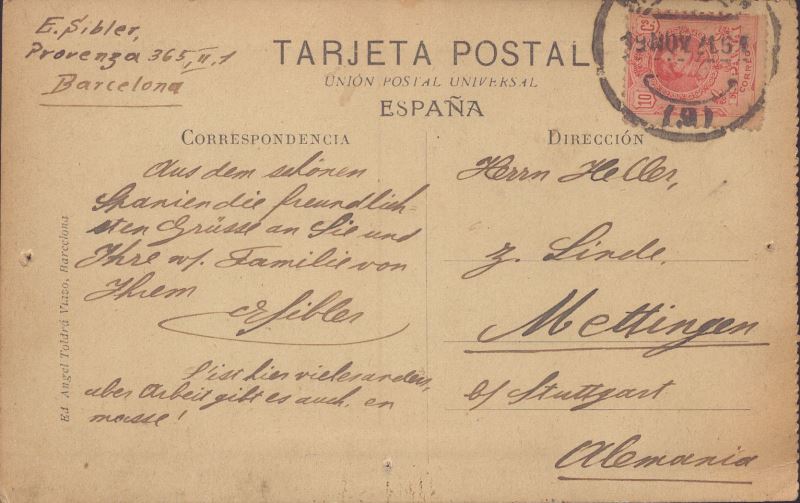 E. Sibler,
Provenza 365, II, 1
Barcelona
TARJETA POSTAL
UNIÓN POSTAL UNIVERSAL
ESPAÑA
CORRESPONDENCIA
Aus dem schönen
Spanien die freundlich-
sten Grüsse an Sie und
Ihre w. Familie von
Ihrem
E Sibler
S'ist hier vieles anders,
aber Arbeit gibt es auch en
masse!
DIRECCIÓN
Herrn Heller,
z. Linde.
Mettingen
b/ Stuttgart
Alemania
Ed. Angel Toldrá Viazo, Barcelona
19 NOV
10
ESPAÑA